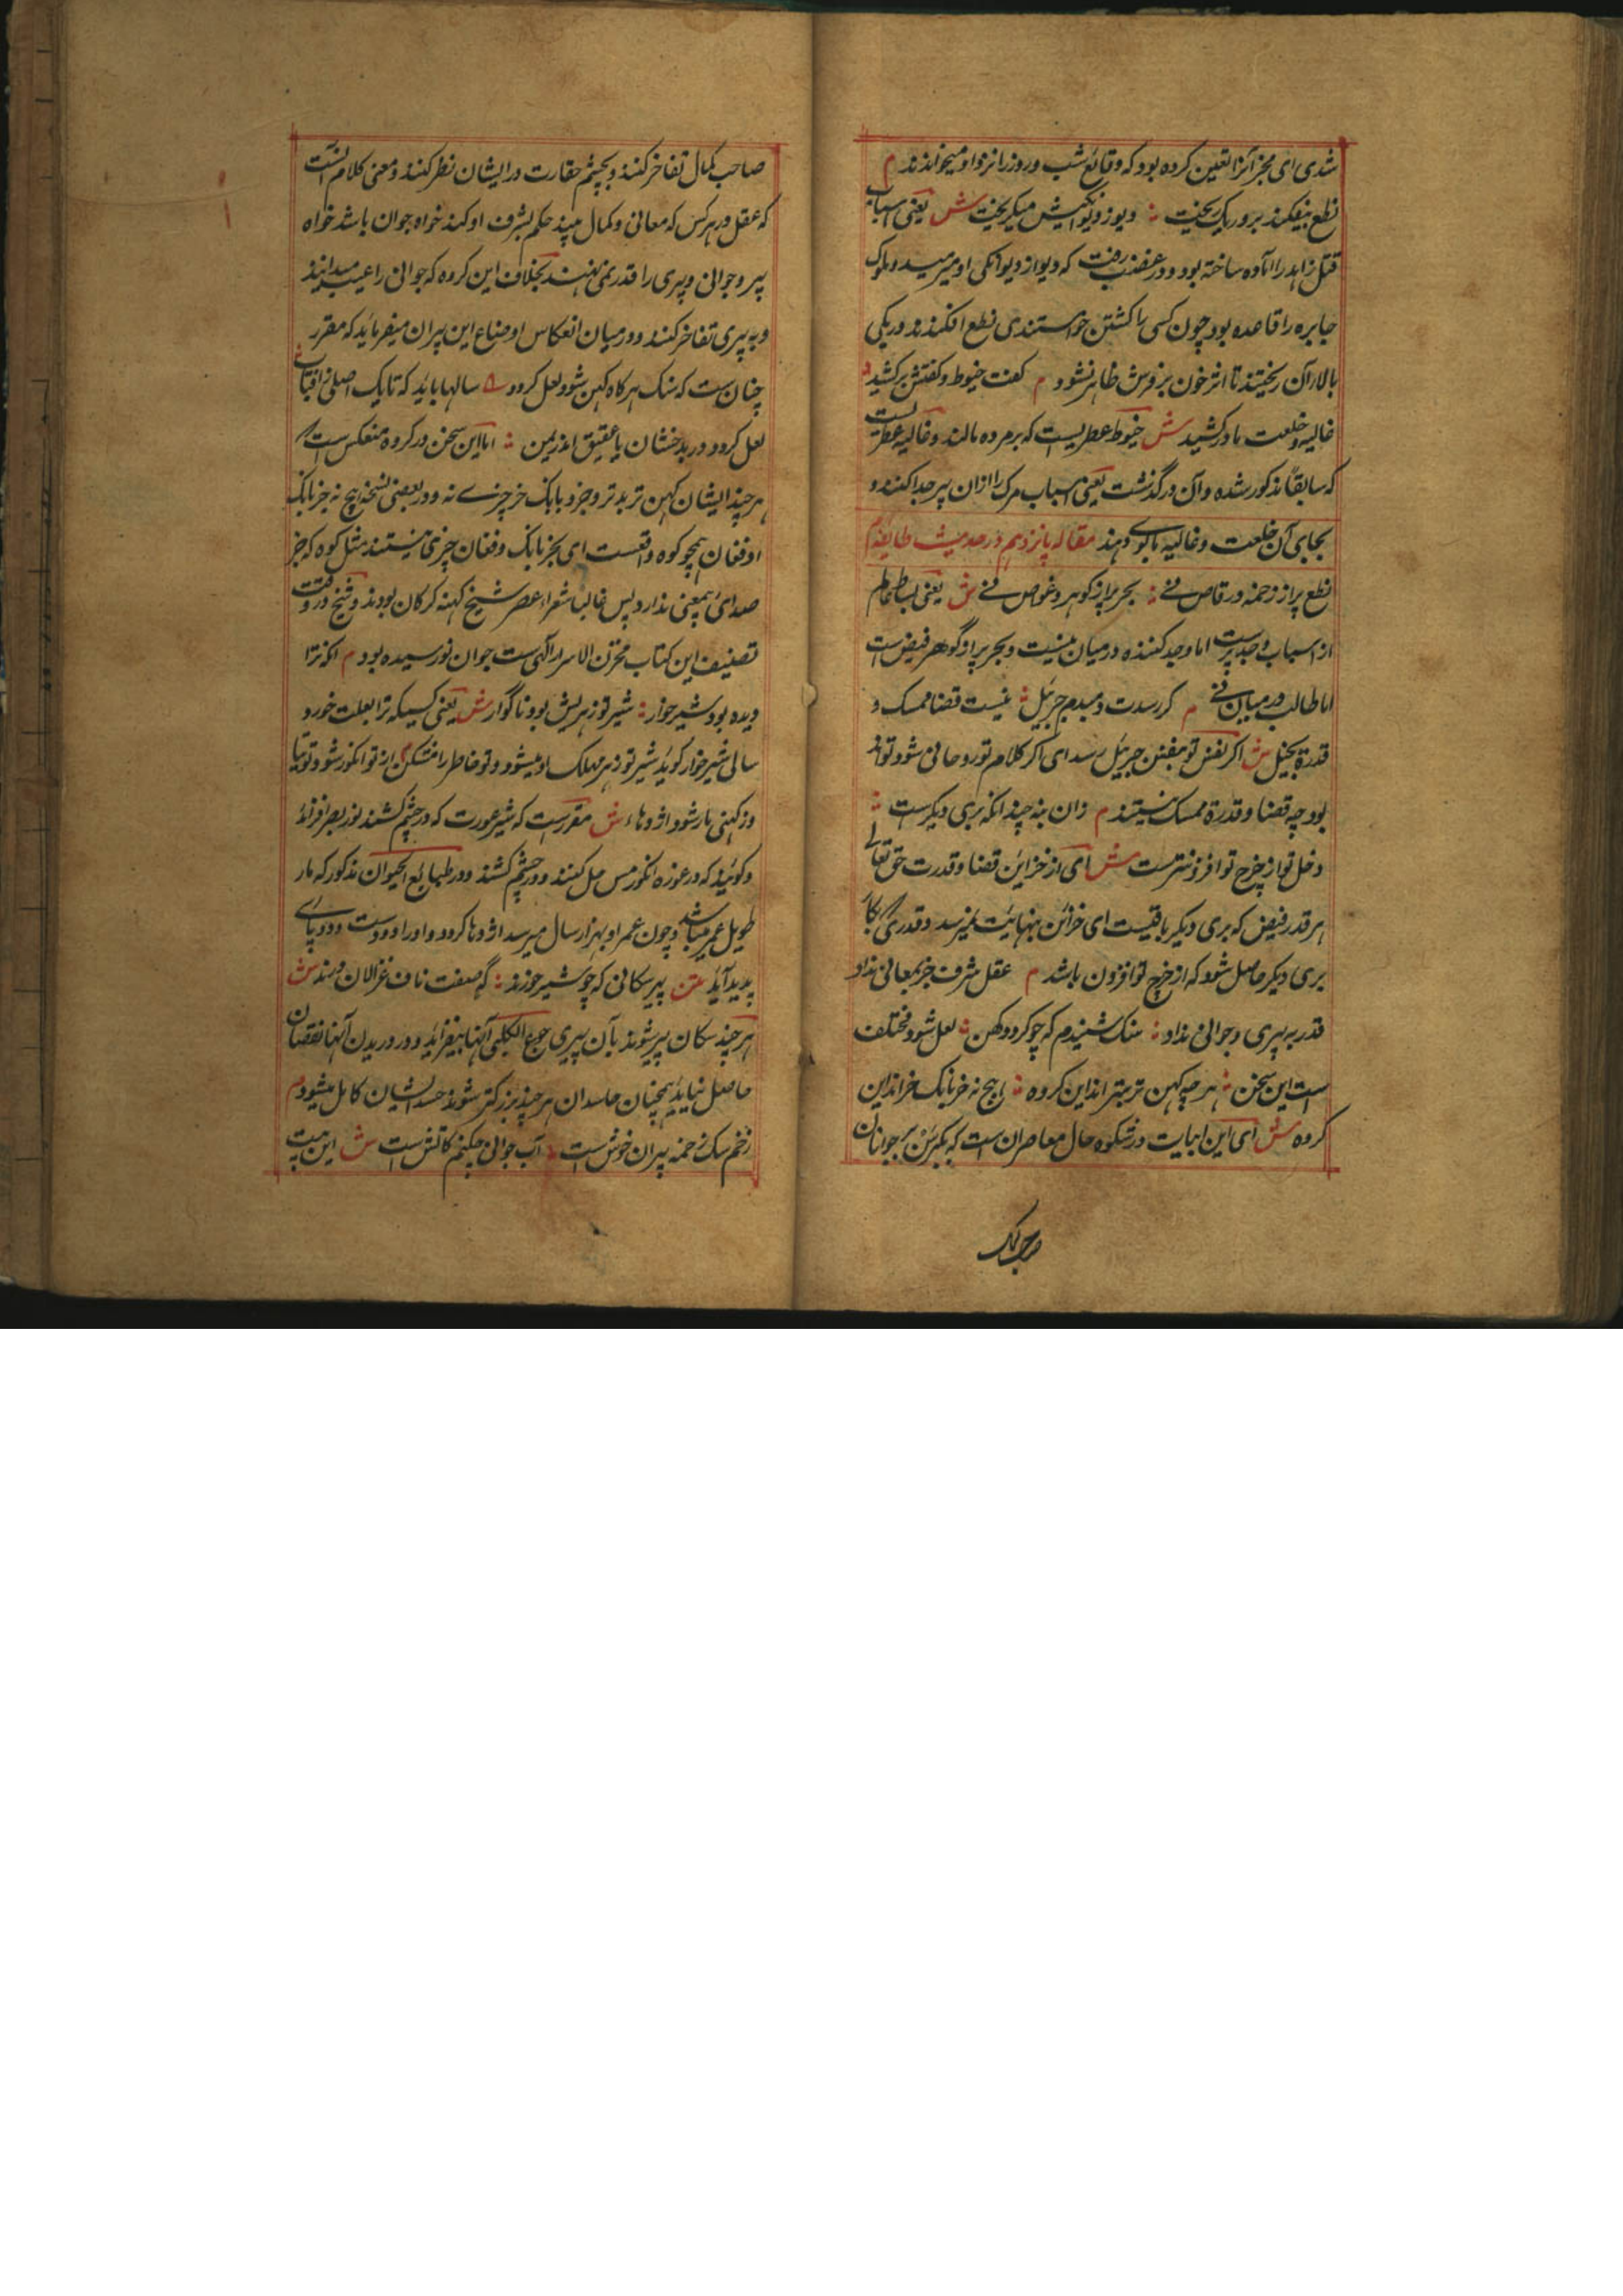 شدی ای مجز آنرا تعین کرده بود که وقائع شب و روز را نزد او میخواندند م
نطع بیفکند برو ریک ریخت ؞ دیو ز دیوانکیش میکریخت ش یعنی اسباب
قتل زاهد را آماده ساخته بود و در غضب رفت که دیو از دیوانکی او میرمید و ملوک
جابره را قاعده بود چون کسی را کشتن خواستندی نطع افکندند و ریکی
بالا آن ریختند تا اثر خون بر زمین ظاهر نشود م کفت حنوط و کفنش برکشید
غالیه و خلعت ما درکشید ش حنوط عطریست که بر مرده مالند و غالیه عطریست
که سابقا مذکور شده و آن در گذشت یعنی اسباب مرک را ازان پیر جدا کنند و
بجای آن خلعت و غالیه باو دهند مقاله پانزدهم در مذمت طایفه م
نطع پر از زخمه و رقاص نے ؞ بحر پر از کوهر و غواص نے ش یعنی بساط عالم
از اسباب وجد پرست اما وجد کننده در میان نیست و بحر پر از گوهر فیض است
اما طالب در میان نے م کر رسدت دم بدم جبرئیل ؞ نیست قضا ممسک و
قدرة بخیل ش اکر نفس تو بنفس جبرئیل رسد ای اکر کلام تو روحانی شود تواند
بود چه قضا و قدرة ممسک نیستند م زان بنه چندانکه بری دیکرست ؞
دخل تو از خرج تو افزونترست ش ای از خزاین قضا و قدرت حق تعالی
هر قدر فیض که بری دیکر باقیست ای خزائن بنهایت نمیرسد و قدری که
بری دیکر حاصل شود که از خرج تو افزون باشد م عقل شرف جز بمعانی نداد
قدر به پیری و جوانی نداد ؞ سنک شنیدم که چو کردد کهن ؞ لعل شود مختلف
است این سخن ؞ هر چه کهن تر بتر اند این کروه ؞ هیچ نه جز بانک خر اند این
کروه ش ای این ابیات در شکوه حال معاصران است که بکبر سن بر جوانان
صاحب کمال
صاحب کمال تفاخر کنند و بچشم حقارت در ایشان نظر کنند و معنی کلام آنست
که عقل در هر کس که معانی و کمال بیند حکم بشرف او کند خواه جوان باشد خواه
پیر و جوانی و پیری را قدر نمی نهند بخلاف این کروه که جوانی را عیب میدانند
و به پیری تفاخر کنند و در میان انعکاس اوضاع این پیران میفرماید که مقرر
چنان ست که سنک هر کاه کهن شود لعل کردد سالها باید که تا یک اصلی ز افتاب
لعل کردد در بدخشان یا عقیق اندر یمن ؞ اما این سخن در کروه منعکس است
هر چند ایشان کهن تر بدتر و جز و بابانک خر چیزے نه و در بعضی نسخه هیچ نه جز بانک
او فغان همچو کوه واقعست ای بجز بانک و فغان چیزی نیستند مثل کوه که جز
صدای بمعنی ندارد پس غالبا شعراء عصر شیخ کهنه کرکان بودند و شیخ در وقت
تصنیف این کتاب مخزن الاسرار آلهی ست جوان نورسیده بود م آنکه ترا
دیده بود شیر خوار ؞ شیر تو زهریش بود ناگوار ش یعنی کسیکه ترا بعلت خورد
سالی شیرخوار کوید شیر تو زهر مهلک او میشود و تو خاطر را مشکن از تو انکور شود توتیا
وز کهنی مار شود اژدها ش مقررست که شیر عورت که در چشم کشند نور بصر افزاید
و کویند که در غوره انکور مس حل کنند و در چشم کشند و در طبایع الحیوان مذکور که مار
طویل عمر میباشد و چون عمر او بهزار سال میرسد اژدها کردد و اورا دو دست و دو پاے
پدید آید متن پیر سکانی که چو شیر خورند ؞ گه صفت ناف غزالان درند ش
هر چند سکان پیر شوند بآن پیری جوع الکلبی آنها بیفزاید و در دریدن آنها نقصان
حاصل نیاید همچنان حاسدان هر چند بزرکتر شوند حسد ایشان کامل میشود م
زخم سک زخمه پیران خوش است ؞ آب جوانی چکنم کاتش است ش این بیت